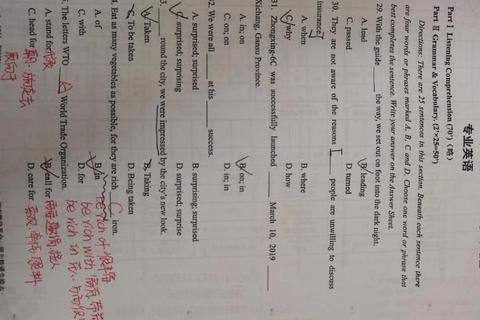 专业英语
Part I Listening Comprehension (70') (略)
Part II Grammar & Vocabulary. (2'×25=50')
Directions: There are 25 sentences in this section. Beneath each sentence there
are four words or phrases marked A, B, C and D. Choose one word or phrase that
best completes the sentence. Write your answer on the Answer Sheet.
29. With the guide ____ the way, we set out on foot into the dark night.
A. lead B. leading
C. passed D. turned
30. They are not aware of the reasons ____ people are unwilling to discuss
insurance.
A. when B. where
C. why D. how
31. Zhongxing-6C was successfully launched ____ March 10, 2019 ____
Xichang, Gansu Province.
A. in; on B. on; in
C. on; on D. in; in
2. We were all ____ at his ____ success.
A. surprised; surprised B. surprising; surprised
C. surprised; surprising D. surprised; surprise
3. ____ round the city, we were impressed by the city's new look.
Taken B. Taking
C. To be taken D. Being taken
4. Eat as many vegetables as possible, for they are rich C iron.
A. of B. in
C. with D. for
be rich of
be rich with
be rich in
The letters WTO A World Trade Organization.
A. stand for B. call for
C. head for D. care for